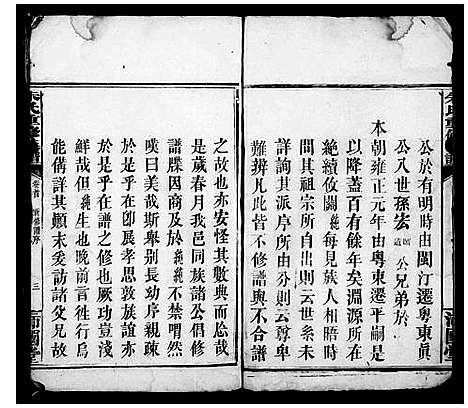 公於有明時由閩汀遷粵東眞
公八世孫宏 公兄弟於
本朝雍正元年由粵東遷平嗣是
以降蓋百有餘年矣淵源所在
絕續攸關 每見族人相晤時
問其祖宗所自出則云世系未
詳詢其派序所由分則云尊卑
難辨凡此皆不修譜與不合譜
之故也亦安怪其數典而忘哉
是歲春月我邑同族諸公倡修
譜牒因商及於 不禁喟然
嘆曰美哉斯舉別長幼序親疎
於是乎在卽展孝思敦族誼亦
於是乎在譜之修也厥功豈淺
鮮哉但 生也晚前言徃行烏
能備詳其顛末爰訪諸父兄故
卷首
三